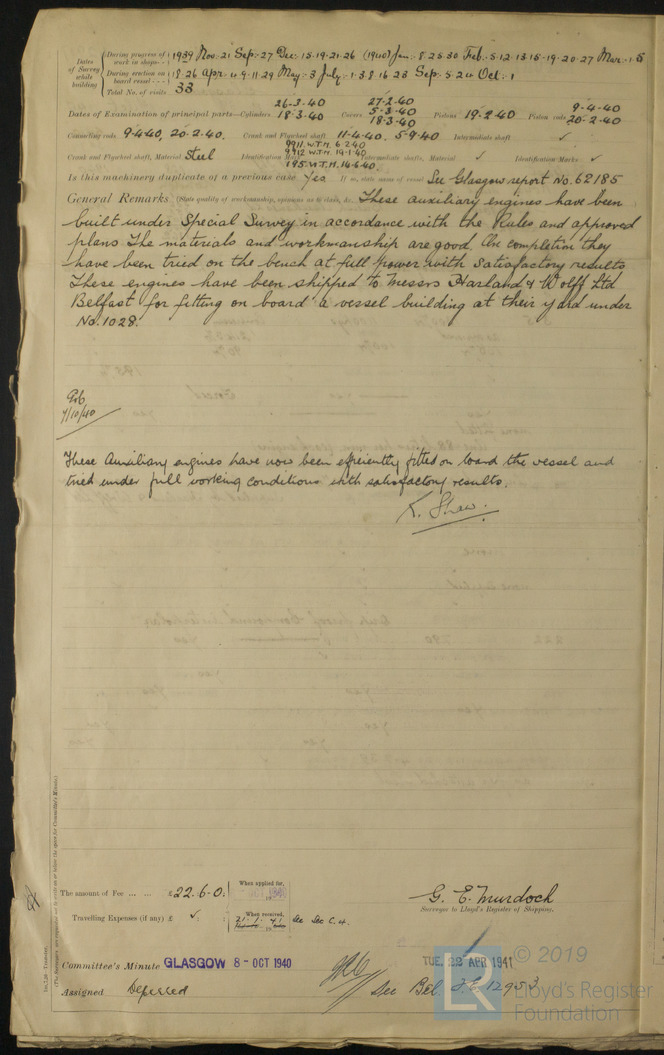 Dates of Survey while building
During progress of work in shops - - 1939 Nov. 21 Sep. 27 Dec. 15.19.21.26 (1940) Jan. 8.25.30 Feb. 5.12.13.15.19.20.27 Mar. 1.5
During erection on board vessel - - - 18.26 Apr. 4.9.11.29 May. 3 July. 1.3.8.16.23 Sep. 5.24 Oct. 1
Total No. of visits 33
Dates of Examination of principal parts—Cylinders 26-3-40 18-3-40 Covers 27-2-40 5-3-40 18-3-40 Pistons 19-2-40 Piston rods 9-4-40 20-2-40
Connecting rods 9-4-40, 20-2-40. Crank and Flywheel shaft 11-4-40. 5-9-40 Intermediate shaft ✓
Crank and Flywheel shaft, Material Steel Identification Mark 9911 W.T.M. 6-2-40 9912 W.T.M. 19-1-40 195 W.T.M. 14-6-40 Intermediate shafts, Material ✓ Identification Marks ✓
Is this machinery duplicate of a previous case Yes If so, state name of vessel See Glasgow report No. 62185
General Remarks (State quality of workmanship, opinions as to class, &c. These auxiliary engines have been
built under Special Survey in accordance with the Rules and approved
plans. The materials and workmanship are good. On completion they
have been tried on the bench at full power with satisfactory results
These engines have been shipped to Messrs Harland & Wolff Ltd
Belfast for fitting on board a vessel building at their yard under
No. 1028.
7/10/40
These Auxiliary engines have now been efficiently fitted on board the vessel and
tried under full working conditions with satisfactory results.
K. Shaw.
The amount of Fee ... ... £22.6.0: When applied for,
Travelling Expenses (if any) £ ✓ : : When received, 21.1.41 See Sec C.4.
G. E. Murdoch
Surveyor to Lloyd's Register of Shipping.
Committee's Minute GLASGOW 8-OCT 1940 TUE. 22 APR 1941
Assigned Deferred See Bel. J.E. 12953
© 2019
LR
Lloyd's Register
Foundation